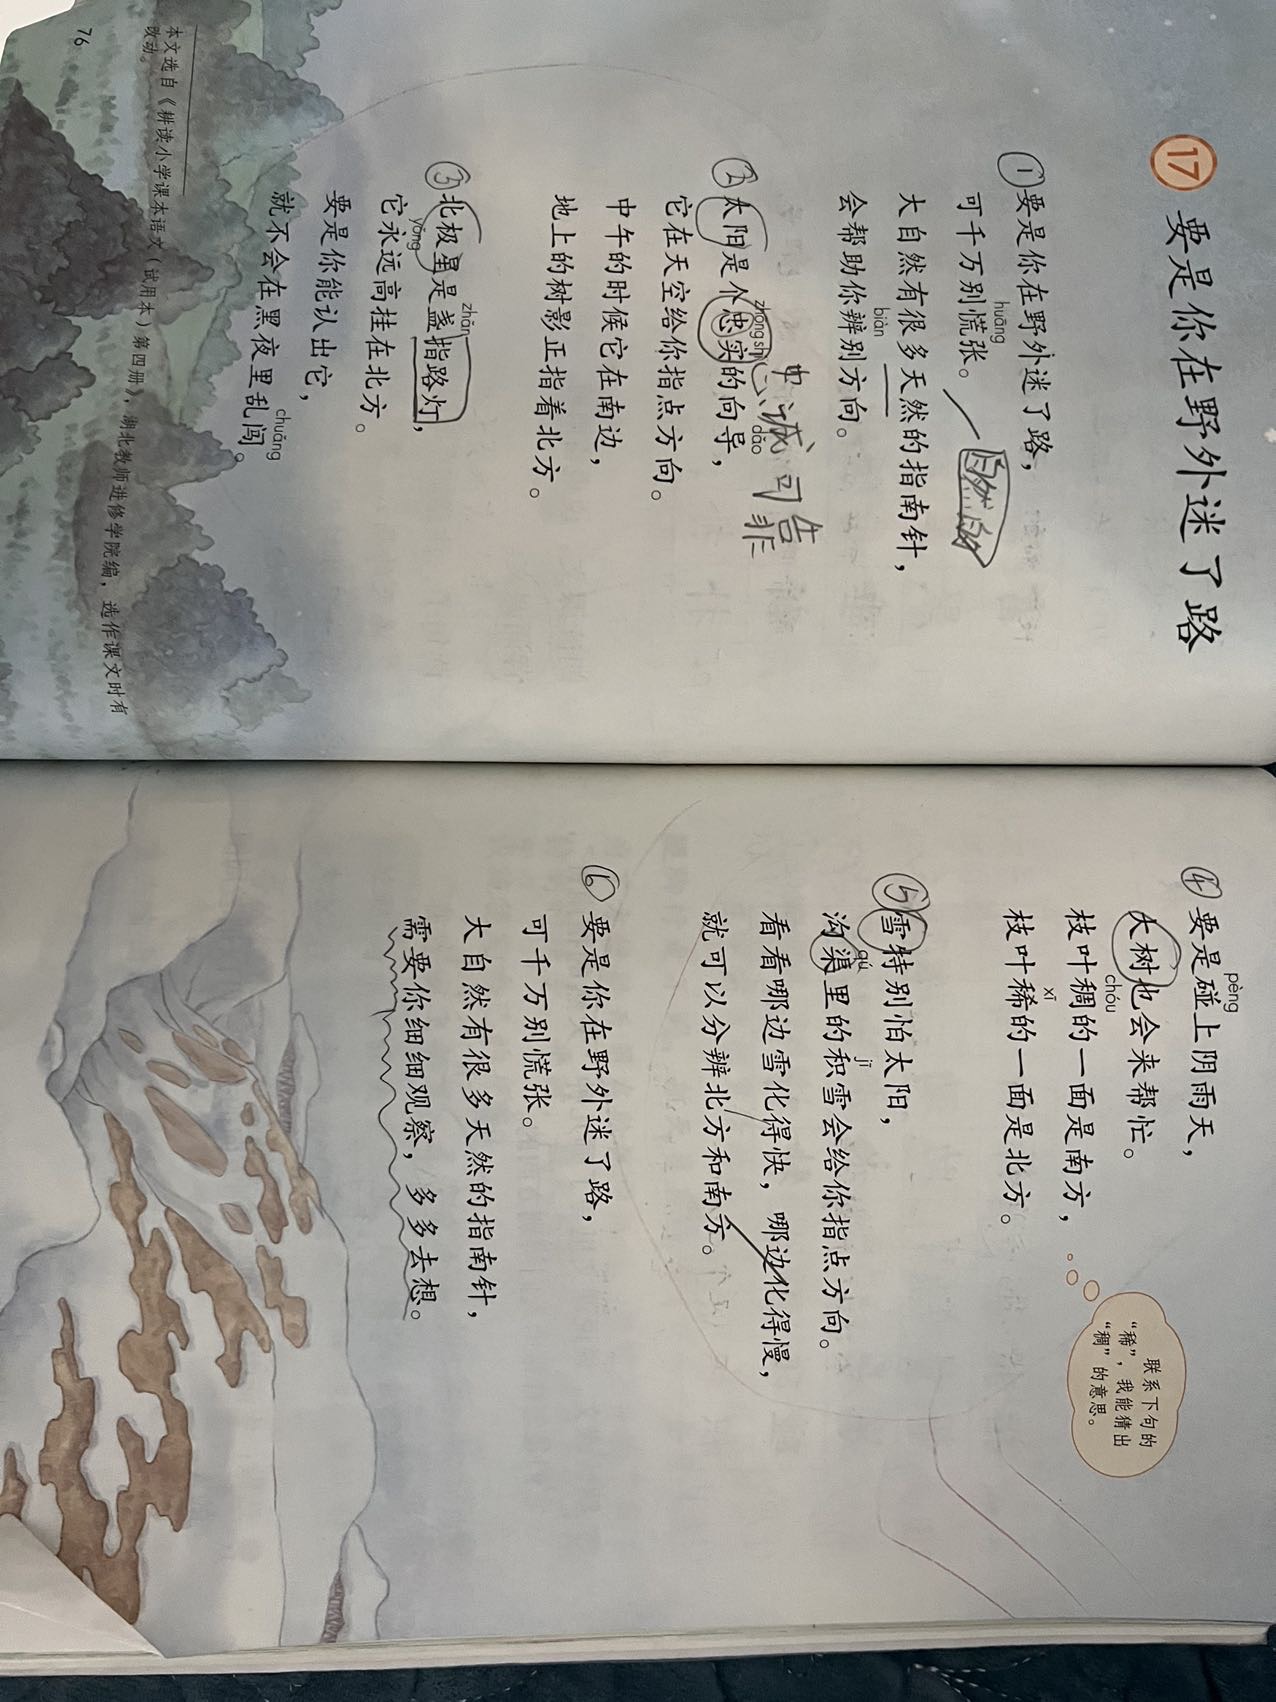 17 要是你在野外迷了路
①要是你在野外迷了路，
huāng
可千万别慌张。
自然
大自然有很多天然的指南针，
biàn
会帮助你辨别方向。
zhōng shí
②太阳是个忠实的向导，
dǎo
忠诚可靠
它在天空给你指点方向。
中午的时候它在南边，
地上的树影正指着北方。
zhǎn
③北极星是盏指路灯，
yǒng
它永远高挂在北方。
要是你能认出它，
chuǎng
就不会在黑夜里乱闯。
本文选自《耕读小学课本语文（试用本）第四册》，湖北教师进修学院编，选作课文时有
改动。
76
pèng
④要是碰上阴雨天，
大树也会来帮忙。
chóu
枝叶稠的一面是南方，
xī
枝叶稀的一面是北方。
联系下句的
“稀”，我能猜出
“稠”的意思。
⑤雪特别怕太阳，
qú jī
沟渠里的积雪会给你指点方向。
看看哪边雪化得快，哪边化得慢，
就可以分辨北方和南方。
⑥要是你在野外迷了路，
可千万别慌张。
大自然有很多天然的指南针，
需要你细细观察，多多去想。